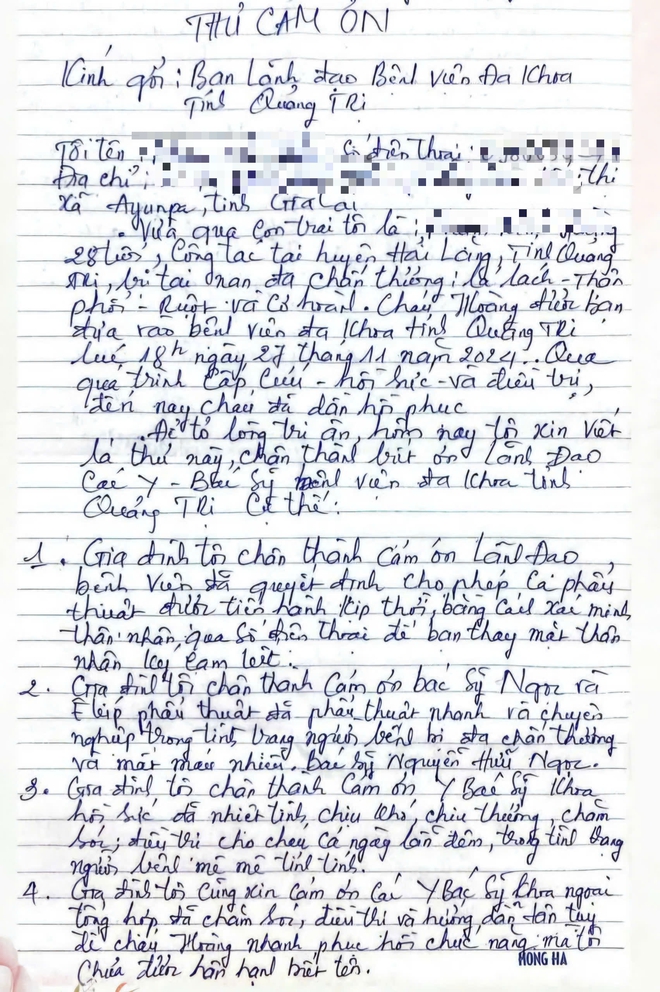 THƯ CẢM ƠN
Kính gởi: Ban Lãnh đạo Bệnh viện Đa Khoa
Tỉnh Quảng Trị
Tôi tên: Số điện thoại:
Địa chỉ: , thị
xã Ayunpa, tỉnh Gia Lai
. Vừa qua con trai tôi là:
28 tuổi, công tác tại huyện Hải Lăng, Tỉnh Quảng
Trị, bị tai nạn đa chấn thương: lá lách - Thận
phổi - Ruột và cơ hoành. Cháu Hoàng được bạn
đưa vào bệnh viện đa khoa tỉnh Quảng Trị
lúc 18h ngày 27 tháng 11 năm 2024. Qua
quá trình Cấp Cứu - hồi sức - và điều trị,
đến nay cháu đã dần hồi phục
. Để tỏ lòng tri ân, hôm nay tôi xin viết
lá thư này, chân thành biết ơn Lãnh Đạo
Các Y - Bác Sỹ bệnh viện đa khoa tỉnh
Quảng Trị Cụ thể:
1. Gia đình tôi chân thành cám ơn Lãnh Đạo
bệnh viện đã quyết định cho phép Ca phẫu
thuật được tiến hành kịp thời, bằng cách xác minh
thân nhân qua số điện thoại để bạn thay mặt thân
nhân ký cam kết.
2. Gia đình tôi chân thành cám ơn bác sỹ Ngọc và
Ekíp phẫu thuật đã phẫu thuật nhanh và chuyên
nghiệp trong tình trạng người bệnh bị đa chấn thương
và mất máu nhiều. bác sỹ Nguyễn Hữu Ngọc.
3. Gia đình tôi chân thành cám ơn Y Bác Sỹ Khoa
hồi sức đã nhiệt tình, chịu khó, chịu thương, chăm
sóc; điều trị cho cháu cả ngày lẫn đêm, trong tình trạng
người bệnh mê mê tỉnh tỉnh.
4. Gia đình tôi cũng xin cám ơn các Y Bác Sỹ khoa ngoại
tổng hợp đã chăm sóc, điều trị và hướng dẫn tận tụy
để cháu Hoàng nhanh phục hồi chức năng mà tôi
Chưa được hân hạnh biết tên.
HONG HA